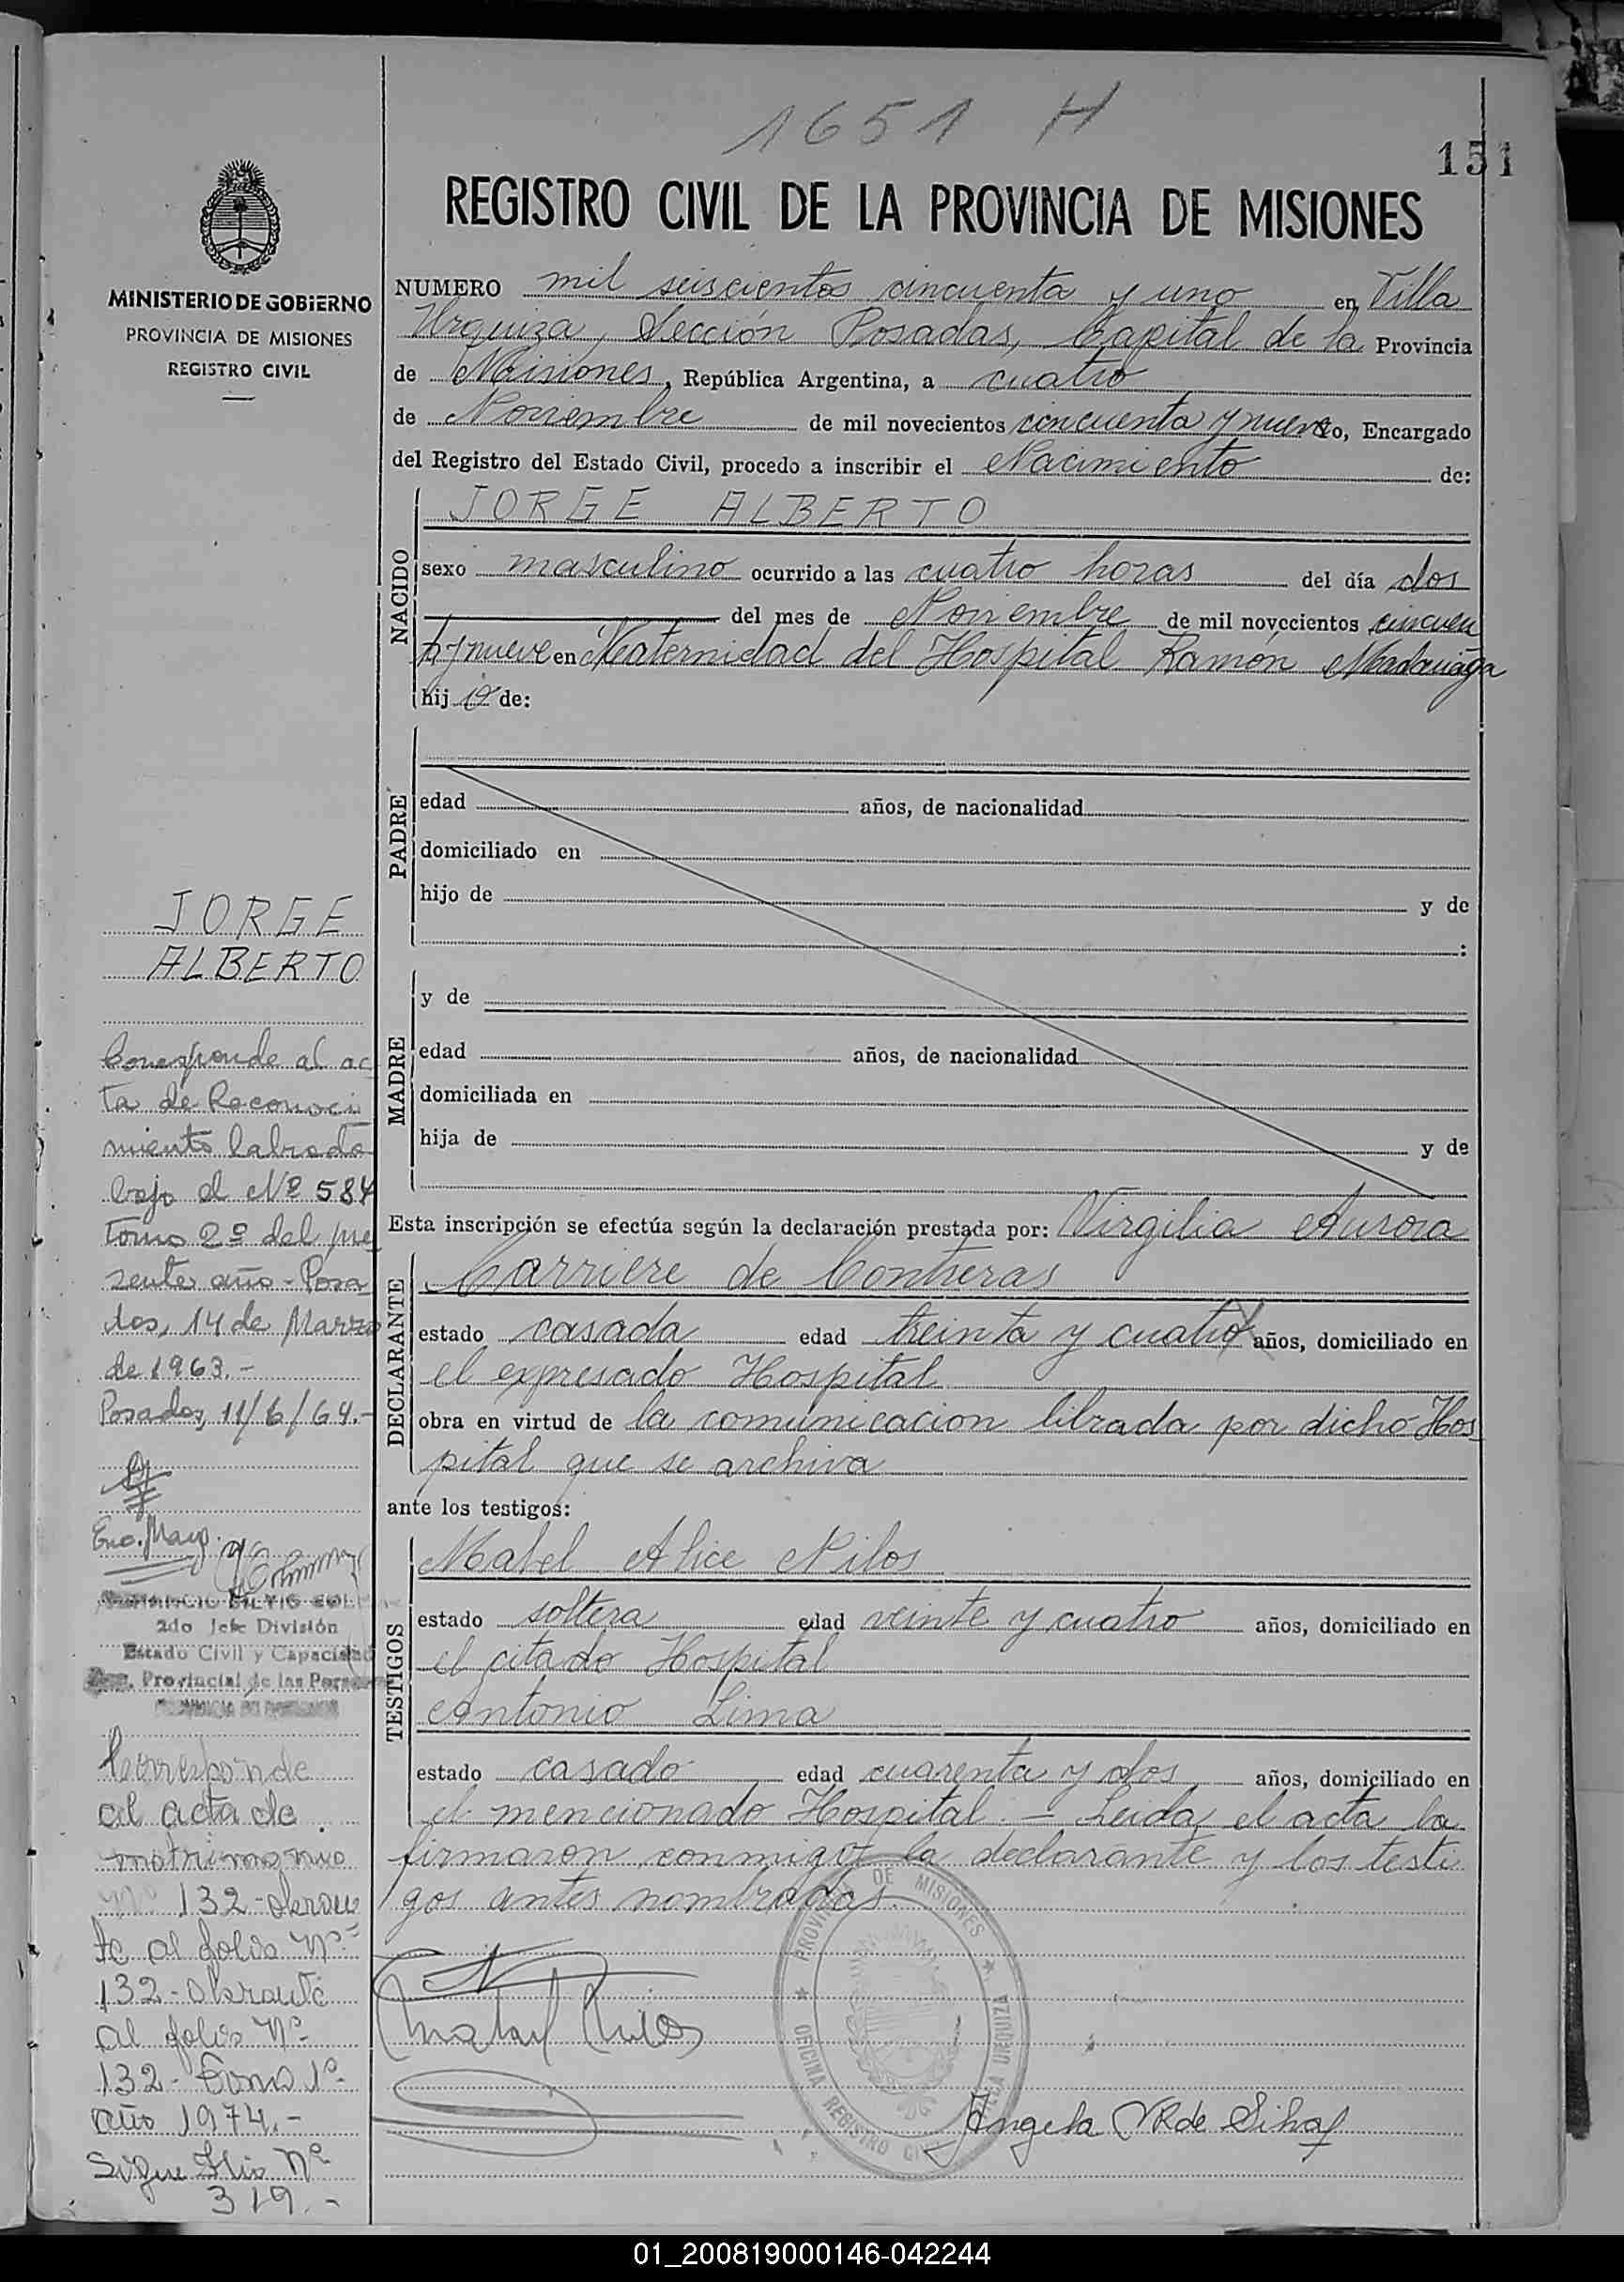 1651 H
151
REGISTRO CIVIL DE LA PROVINCIA DE MISIONES
MINISTERIO DE GOBIERNO
PROVINCIA DE MISIONES
REGISTRO CIVIL
NUMERO mil seiscientos cincuenta y uno en Villa
Urquiza, Sección Posadas, Capital de la Provincia
de Misiones, República Argentina, a cuatro
de Noviembre de mil novecientos cincuenta y nueve yo, Encargado
del Registro del Estado Civil, procedo a inscribir el Nacimiento de:
NACIDO
JORGE ALBERTO
sexo masculino ocurrido a las cuatro horas del día dos
del mes de Noviembre de mil novecientos cincuen
ta y nueve en Maternidad del Hospital Ramón Madariaga
hijo de:
PADRE
edad años, de nacionalidad
domiciliado en
hijo de y de
:
MADRE
y de
edad años, de nacionalidad
domiciliada en
hija de y de
Esta inscripción se efectúa según la declaración prestada por: Virgilia Aurora
DECLARANTE
Carriere de Contreras
estado casada edad treinta y cuatro años, domiciliado en
el expresado Hospital
obra en virtud de la comunicacion librada por dicho Hos
pital que se archiva
ante los testigos:
TESTIGOS
Mabel Alice Rilos
estado soltera edad veinte y cuatro años, domiciliado en
el citado Hospital
Antonio Lima
estado casado edad cuarenta y dos años, domiciliado en
el mencionado Hospital. - Leida el acta la
firmaron conmigo la declarante y los testi
gos antes nombrados.
PROVINCIA DE MISIONES
OFICINA REGISTRO CIVIL
URQUIZA
Angela de Silva
JORGE
ALBERTO
Corresponde al ac
ta de Reconoci
miento labrada
bajo el Nº 584
tomo 2º del pre
sente año - Posa
das, 14 de Marzo
de 1963.-
Posadas, 11/6/64.-
2do Jefe División
Estado Civil y Capacidad
Provincial de las Personas
Corresponde
al acta de
matrimonio
Nº 132 - obran
te al folio Nº
132 - obrante
al folio Nº
132 - Tomo 1º
año 1974.-
Sigue folio Nº
319.-
01_200819000146-042244